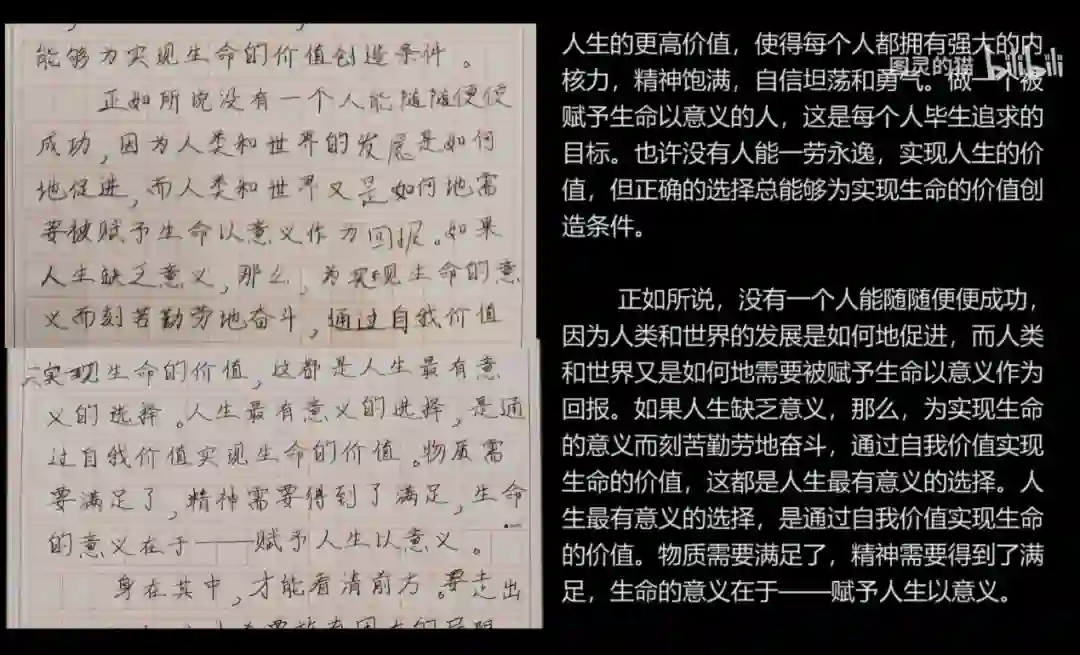 能够为实现生命的价值创造条件。
正如所说没有一个人能随随便便
成功，因为人类和世界的发展是如何
地促进，而人类和世界又是如何地需
要被赋予生命以意义作为回报。如果
人生缺乏意义，那么，为实现生命的意
义而刻苦勤劳地奋斗，通过自我价值
实现生命的价值，这都是人生最有意
义的选择。人生最有意义的选择，是通
过自我价值实现生命的价值。物质需
要满足了，精神需要得到了满足，生命
的意义在于——赋予人生以意义。
身在其中，才能看清前方。要走出
人生的更高价值，使得每个人都拥有强大的内
核力，精神饱满，自信坦荡和勇气。做一个被
赋予生命以意义的人，这是每个人毕生追求的
目标。也许没有人能一劳永逸，实现人生的价
值，但正确的选择总能够为实现生命的价值创
造条件。
正如所说，没有一个人能随随便便成功，
因为人类和世界的发展是如何地促进，而人类
和世界又是如何地需要被赋予生命以意义作为
回报。如果人生缺乏意义，那么，为实现生命
的意义而刻苦勤劳地奋斗，通过自我价值实现
生命的价值，这都是人生最有意义的选择。人
生最有意义的选择，是通过自我价值实现生命
的价值。物质需要满足了，精神需要得到了满
足，生命的意义在于——赋予人生以意义。
图灵的猫 bilibili